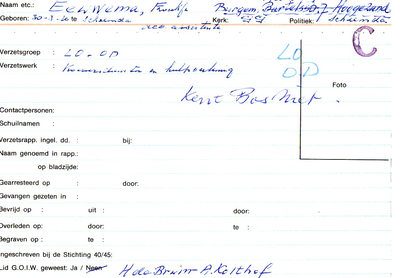 Naam etc.: Eeuwema, Burgem. Hoogezand
Geboren: 30-1-20 te Scheemda Kerk: Politiek:
Verzetsgroep : LO-OD LO
Verzetswerk : OD
Kent Bos niet.
Foto
C
Contactpersonen:
Schuilnaam :
Verzetsrapp. ingel. dd. : bij:
Naam genoemd in rapp.:
op bladzijde:
Gearresteerd op : door:
Gevangen gezeten in :
Bevrijd op : uit : door:
Overleden op: door: te :
Begraven op : te :
ngeschreven bij de Stichting 40/45:
Lid G.O.I.W. geweest: Ja / Neen H de Bruin-A. Kolthof